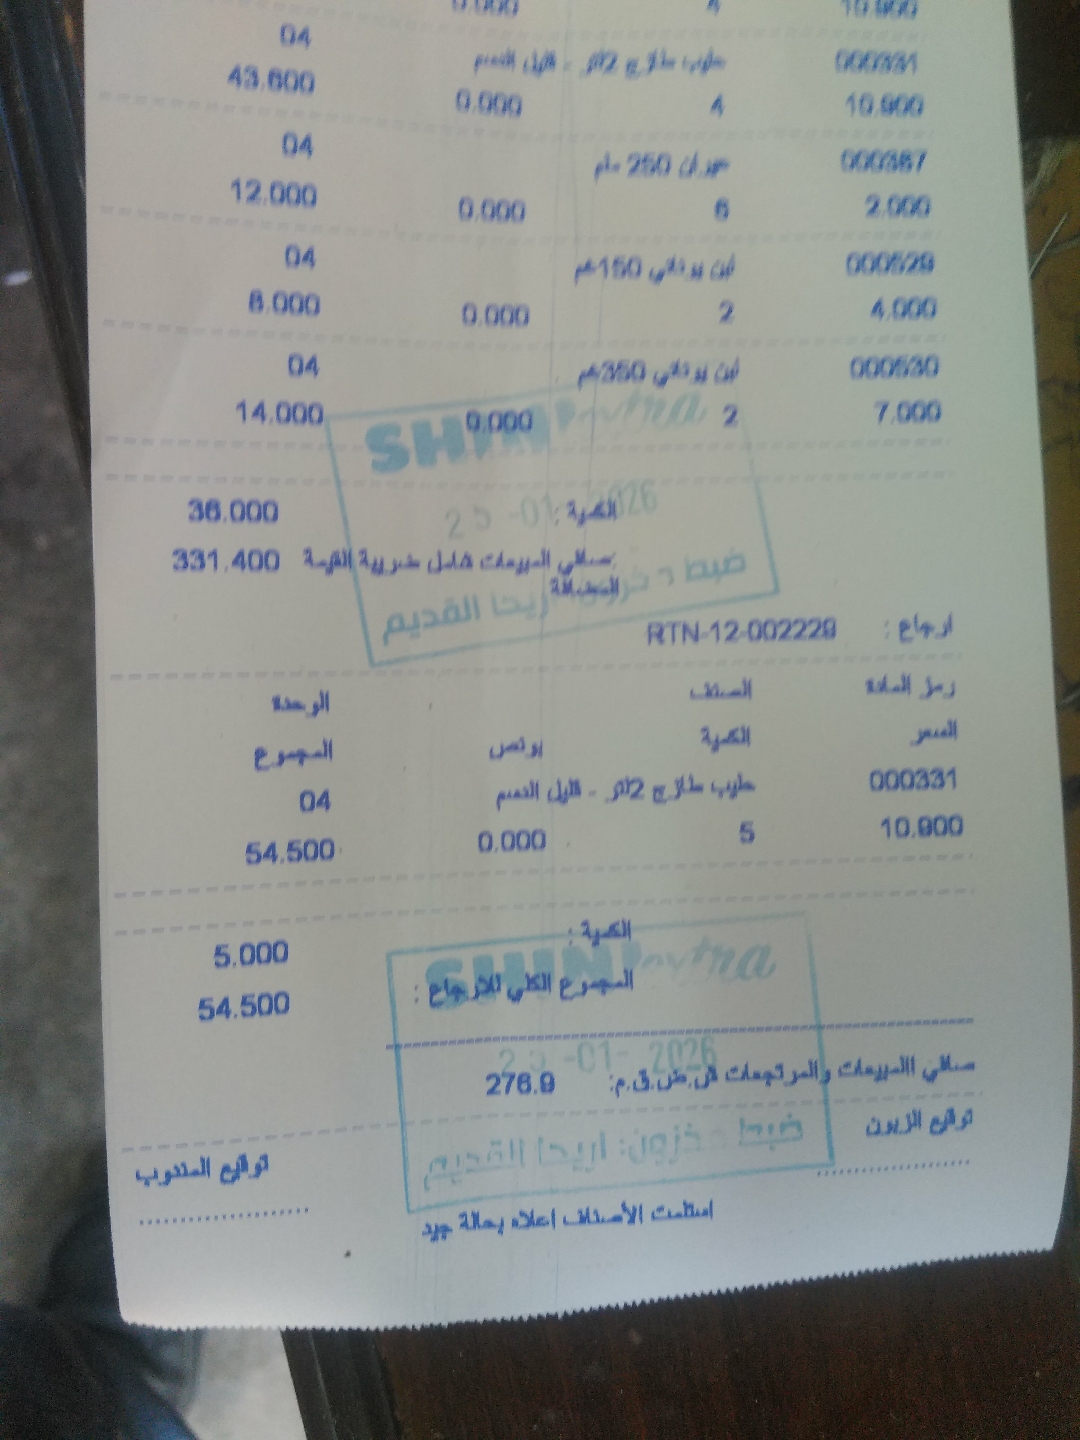 10.900 4 0.000
000331 حليب طازج 2لتر - قليل الدسم 04
10.900 4 0.000 43.600
000367 250 ملم 04
2.000 6 0.000 12.000
000529 لبن يوناني 150غم 04
4.000 2 0.000 8.000
000530 لبن يوناني 350غم 04
7.000 2 0.000 14.000
SHINI extra
-01-2026
ضبط مخزون: اريحا القديم
الكمية: 36.000
صافي المبيعات شامل ضريبة القيمة المضافة: 331.400
ارجاع : RTN-12-002229
رمز المادة الصنف الوحدة
السعر الكمية بونص المجموع
000331 حليب طازج 2لتر - قليل الدسم 04
10.900 5 0.000 54.500
الكمية : 5.000
المجموع الكلي للارجاع : 54.500
SHINI extra
-01-2026
صافي المبيعات والمرتجعات ش.ض.ق.م: 276.9
ضبط مخزون: اريحا القديم
توقيع الزبون توقيع المندوب
استلمت الأصناف اعلاه بحالة جيد